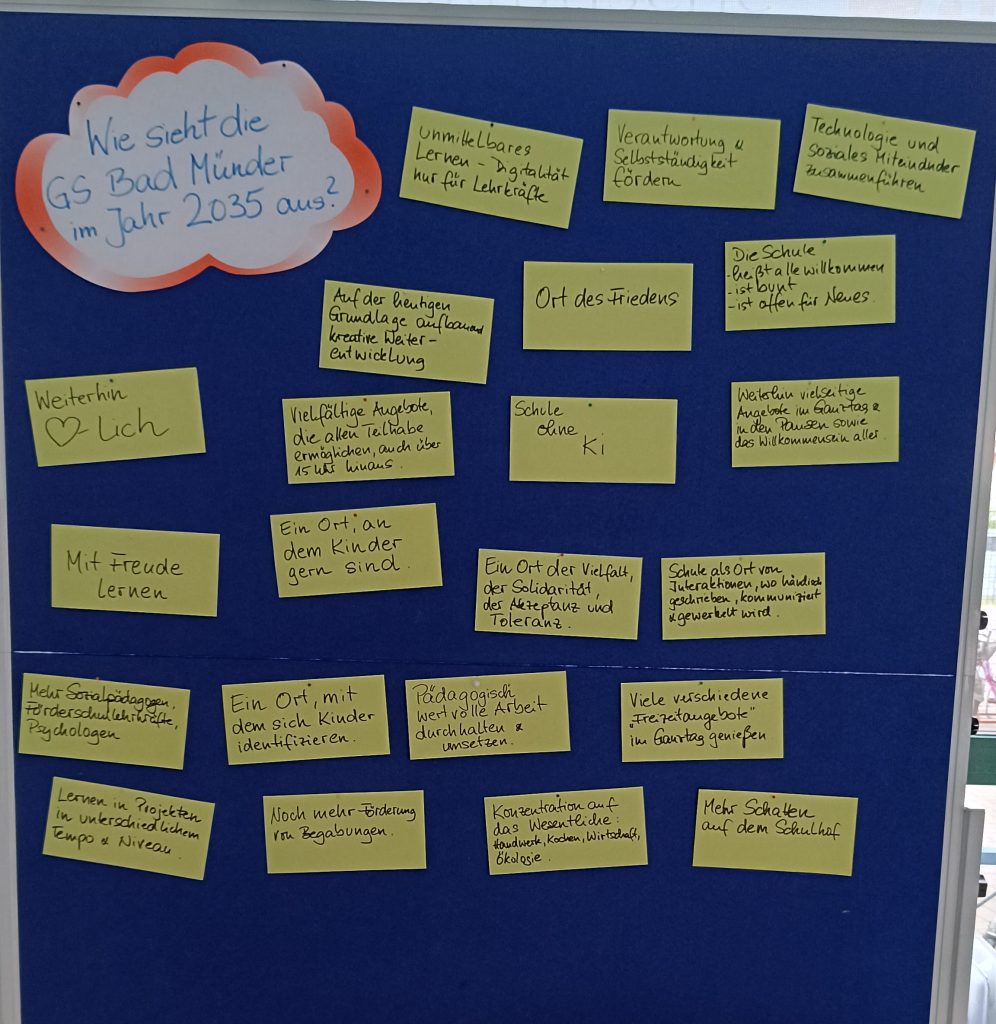 Wie sieht die
GS Bad Münder
im Jahr 2035 aus?
unmittelbares
Lernen - Digitalität
nur für Lehrkräfte
Verantwortung &
Selbstständigkeit
fördern
Technologie und
soziales Miteinander
zusammenführen
Auf der heutigen
Grundlage aufbauend
kreative Weiter-
entwicklung
Ort des Friedens
Die Schule
- heißt alle willkommen
- ist bunt
- ist offen für Neues.
Weiterhin
♡-lich
Vielfältige Angebote,
die allen Teilhabe
ermöglichen, auch über
15 Uhr hinaus.
Schule
ohne
Ki
Weiterhin vielseitige
Angebote im Ganztag &
in den Pausen sowie
das Willkommensein aller.
Mit Freude
lernen
Ein Ort, an
dem Kinder
gern sind.
Ein Ort der Vielfalt,
der Solidarität,
der Akzeptanz und
Toleranz.
Schule als Ort von
Interaktionen, wo händisch
geschrieben, kommuniziert
& gewerkelt wird.
Mehr Sozialpädagogen,
Förderschullehrkräfte,
Psychologen
Ein Ort, mit
dem sich Kinder
identifizieren.
Pädagogisch
wertvolle Arbeit
durchhalten &
umsetzen.
Viele verschiedene
„Freizeitangebote"
im Ganztag genießen
Lernen in Projekten
in unterschiedlichem
Tempo & Niveau.
Noch mehr Förderung
von Begabungen.
Konzentration auf
das Wesentliche:
Handwerk, Kochen, Wirtschaft,
Ökologie.
Mehr Schatten
auf dem Schulhof